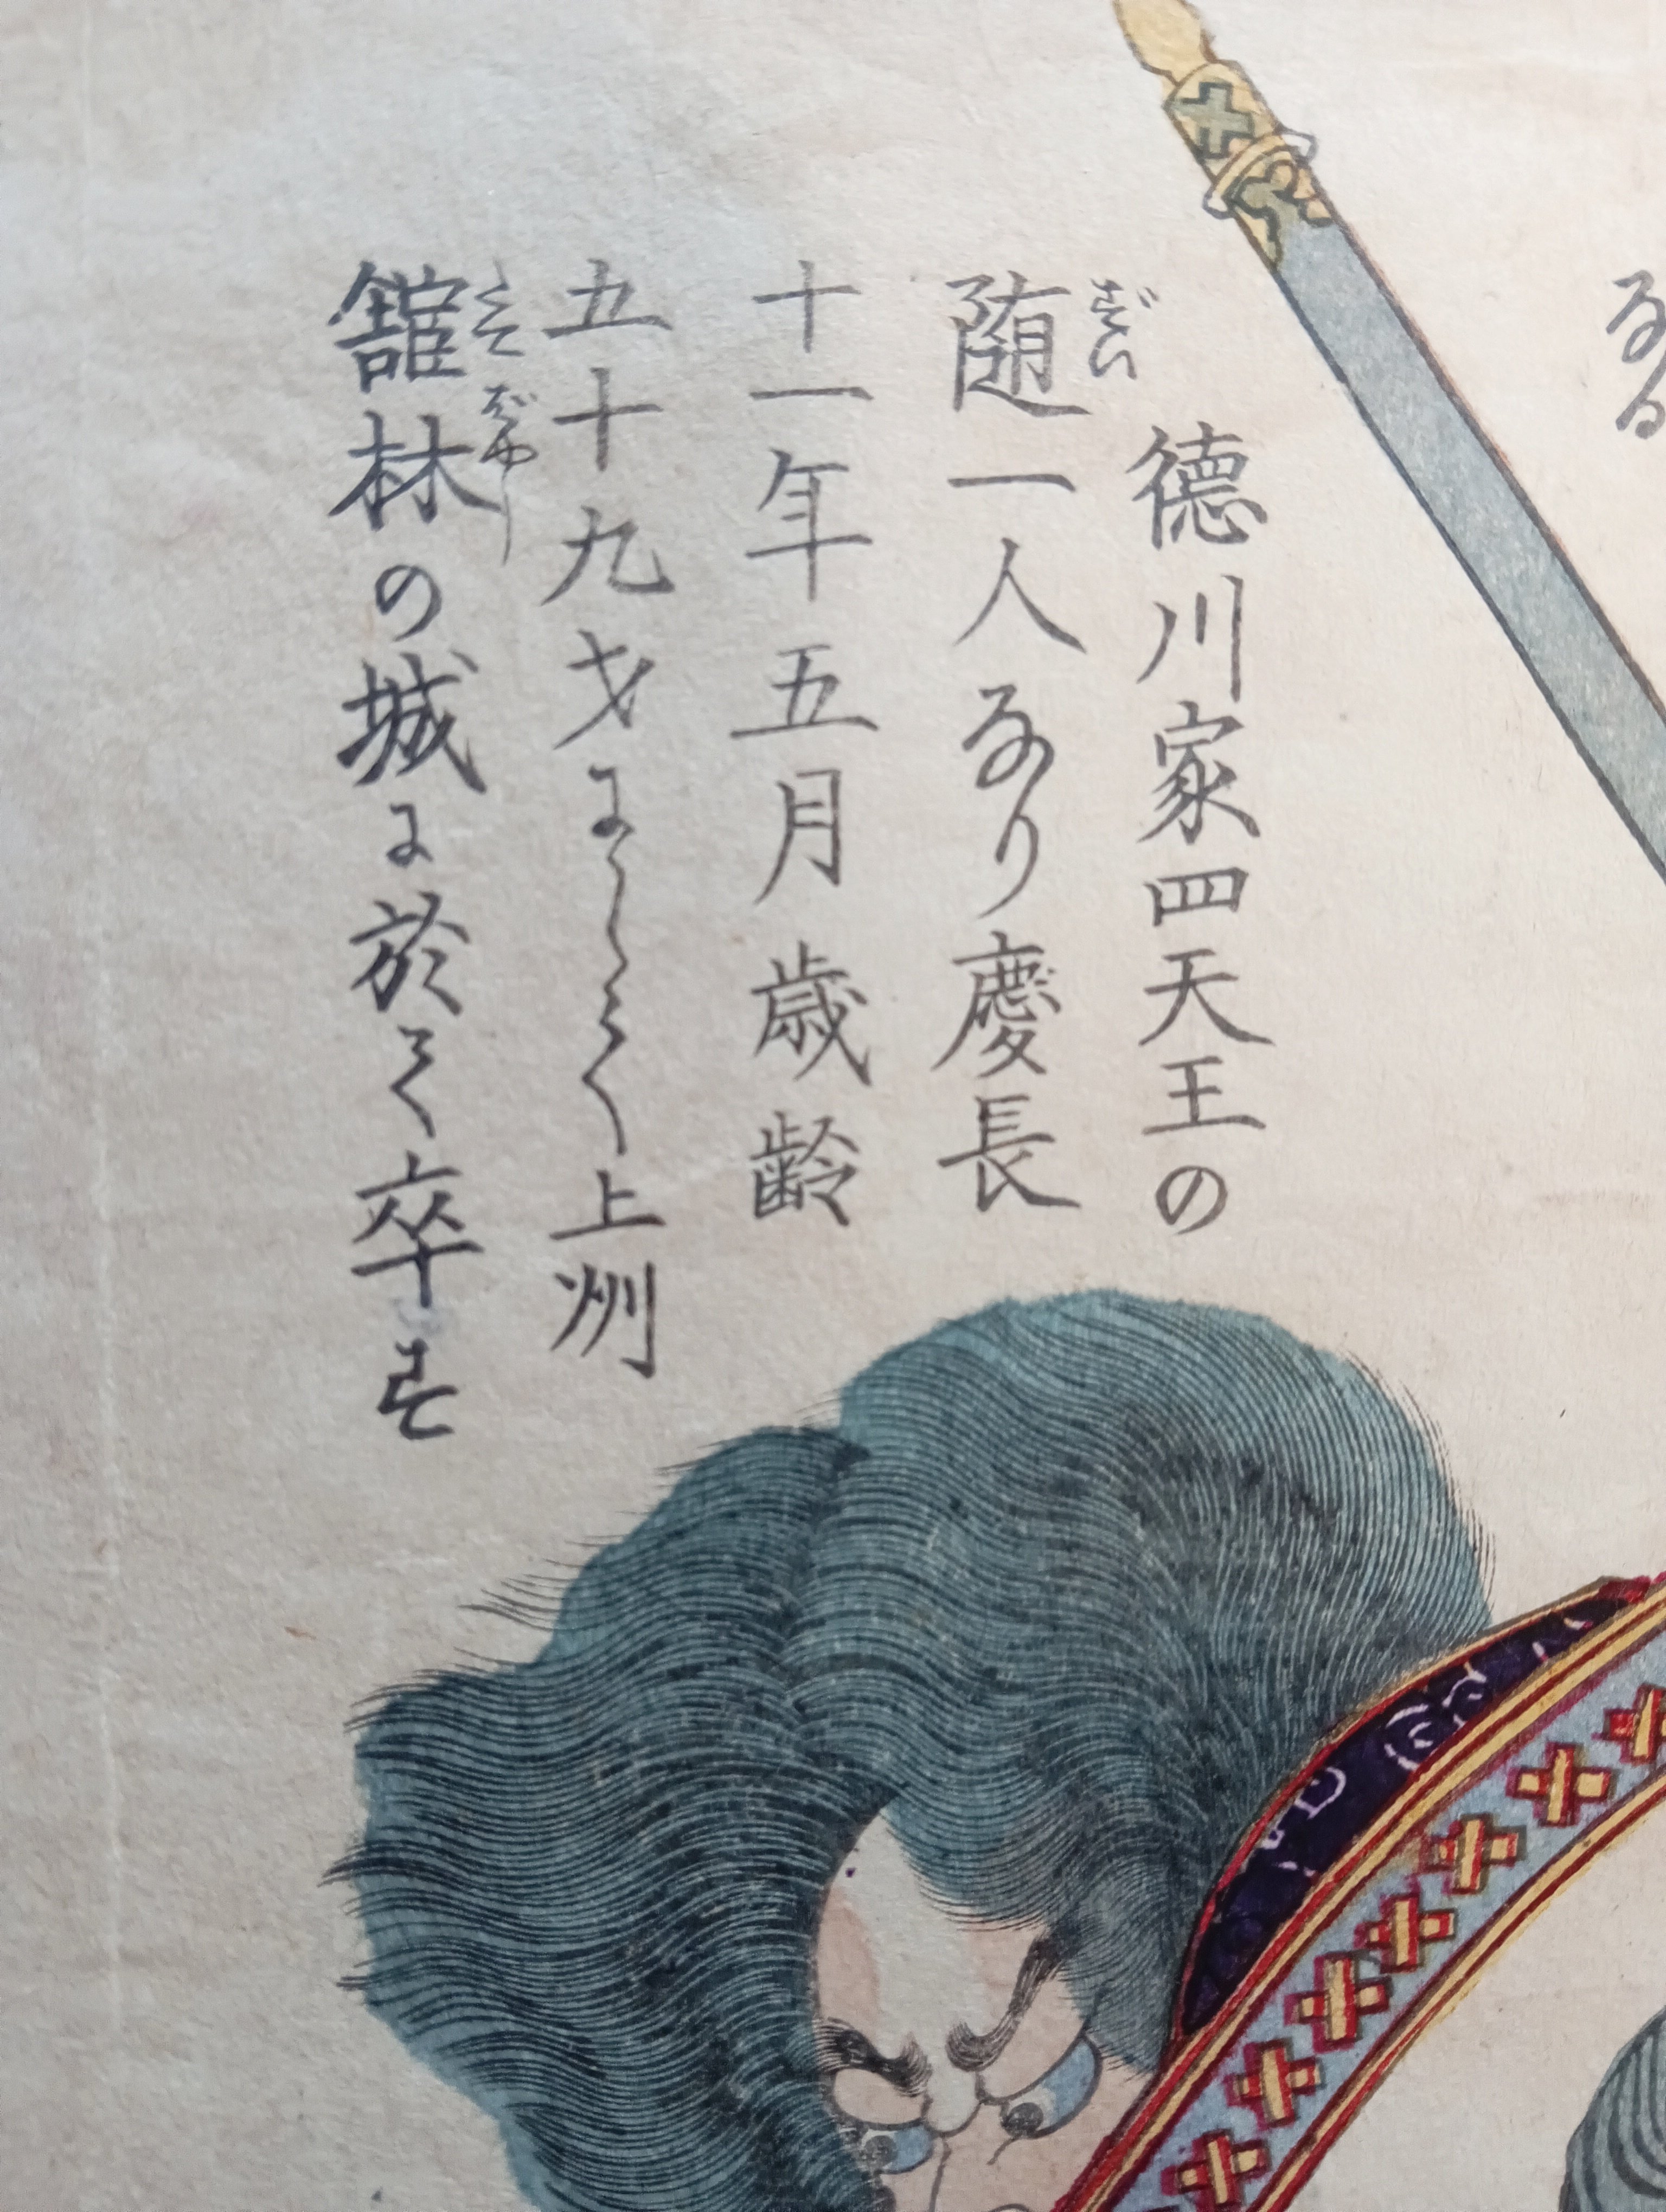 なる
徳川家四天王の
随一人なり慶長
ずい
十一年五月歳齢
五十九才にして上州
舘林の城に於て卒す
たてばやし